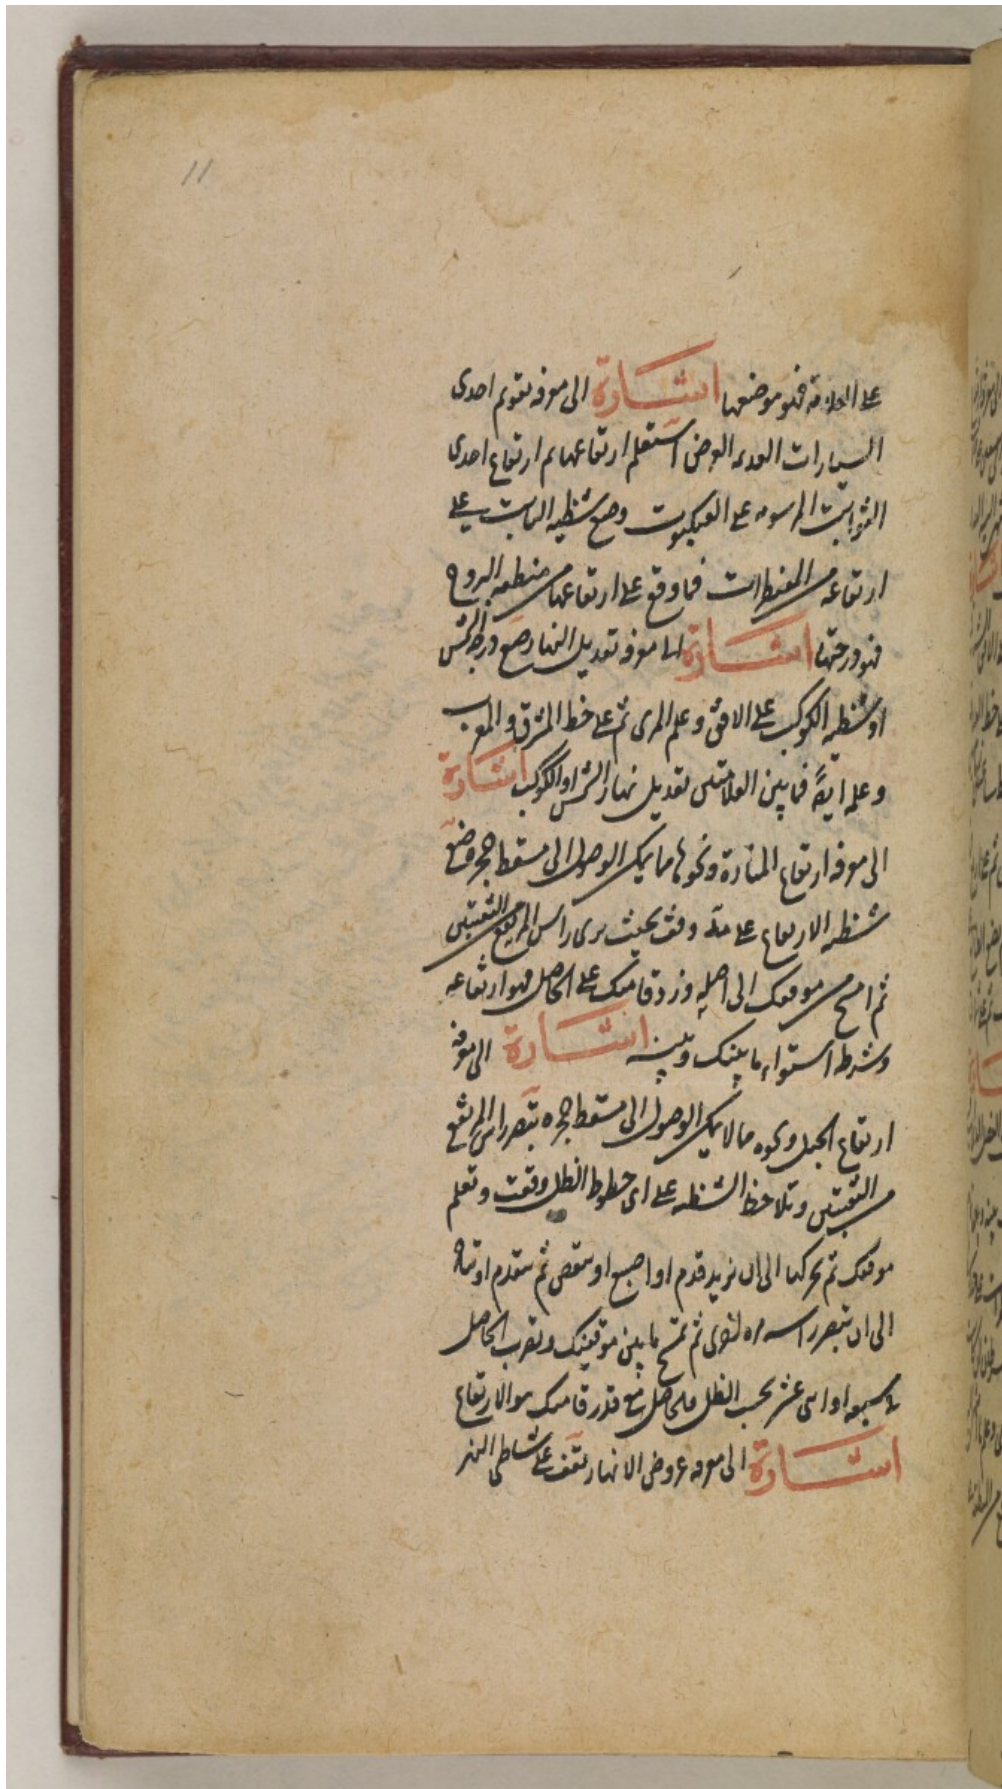 ١١
على العلامة فهو موضعها اشارة الى معرفة تقويم احدى
السيارات العديمة العرض استعلم ارتفاعها ثم ارتفاع احدى
الثوابت المرسومة على العنكبوت وضع شظية الثابت على
ارتفاعه من المقنطرات فما وقع على ارتفاعها من منطقة البروج
فهو درجتها اشارة الى معرفة تعديل النهار ضع درجة الشمس
او شظية الكوكب على الافق وعلم المرى ثم على خط المشرق والمغرب
وعلم ايضا فما بين العلامتين تعديل نهار الشمس او الكوكب اشارة
الى معرفة ارتفاع المنارة ونحوها مما يمكن الوصول الى مسقط حجره ضع
شظية الارتفاع على مه وقف بحيث ترى راس المرتفع من الثقبتين
ثم امسح من موقفك الى اصله وزد قامتك على الحاصل فهو ارتفاعه
وشرطه استواء ما بينك وبينه اشارة الى معرفة
ارتفاع الجبل ونحوه مما لا يمكن الوصول الى مسقط حجره تبصر راس المرتفع
من الثقبتين وتلاحظ الشظية على اى خطوط الظل وقعت وتعلم
موقفك ثم تحركها الى ان تزيد قدم او اصبع او تنقص ثم تتقدم او تتاخر
الى ان تبصر راسه مرة اخرى ثم تمسح ما بين موقفيك وتضرب الحاصل
فى سبعة او اثنى عشر بحسب الظل فالحاصل مع قدر قامتك هو الارتفاع
اشارة الى معرفة عروض الانهار تقف على شاطئ النهر